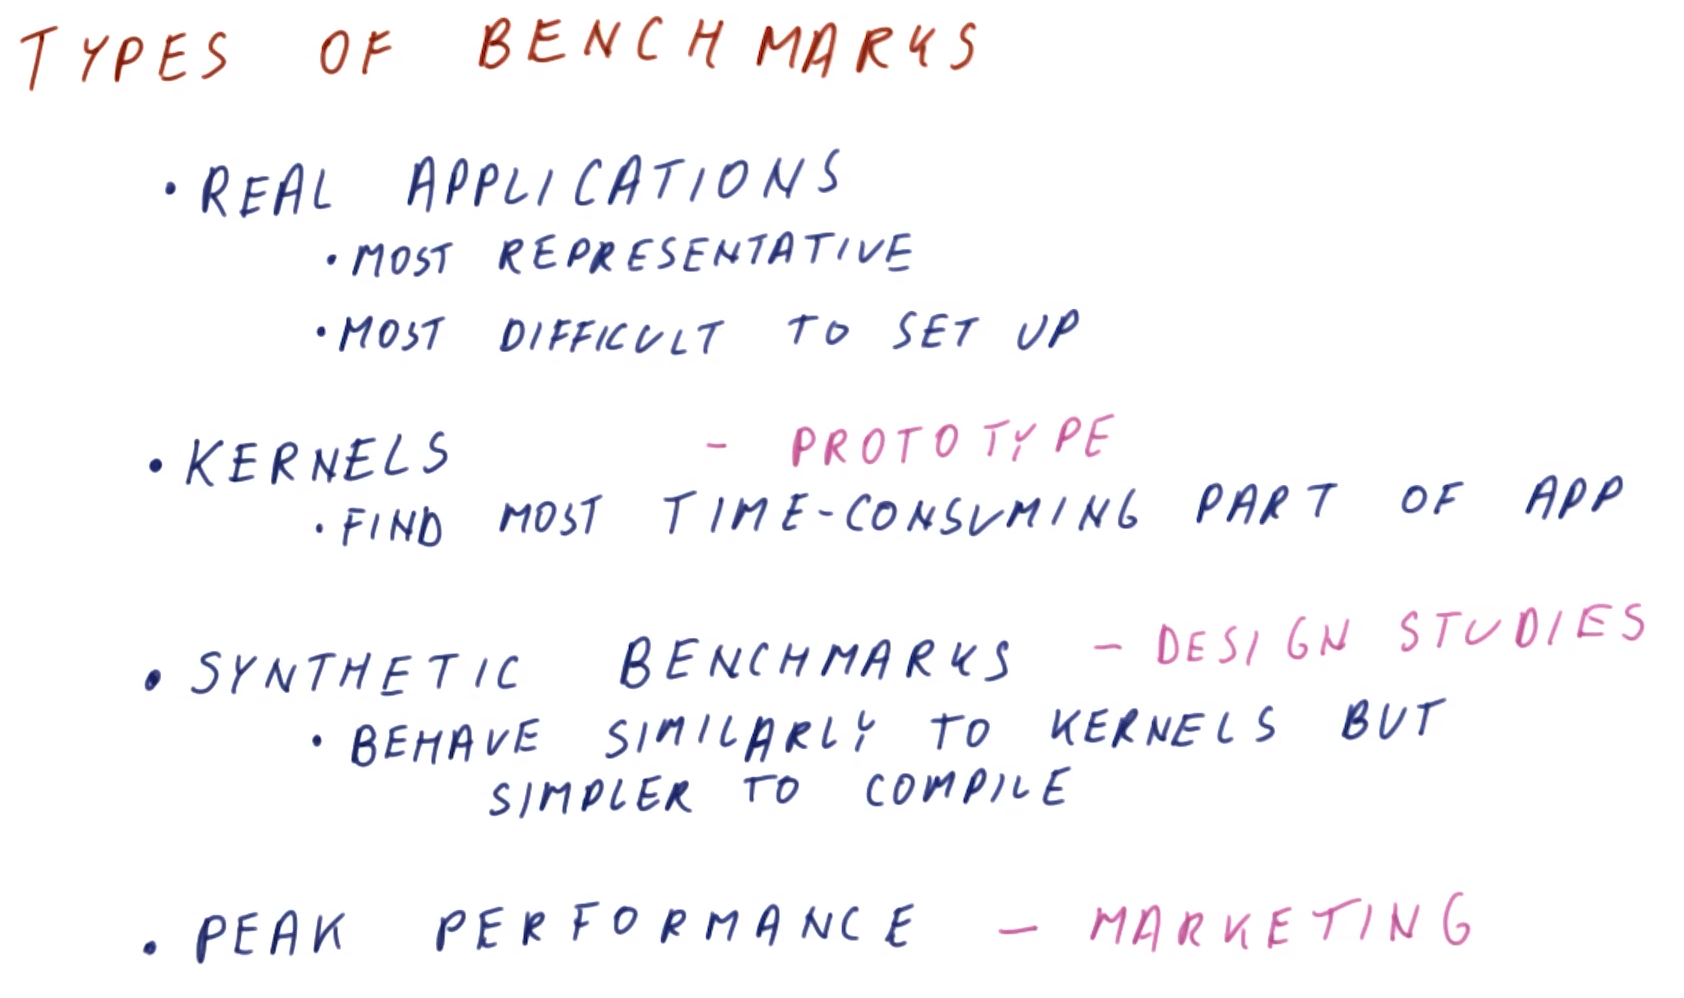 TYPES OF BENCHMARKS
• REAL APPLICATIONS
• MOST REPRESENTATIVE
• MOST DIFFICULT TO SET UP
• KERNELS - PROTOTYPE
• FIND MOST TIME-CONSUMING PART OF APP
• SYNTHETIC BENCHMARKS - DESIGN STUDIES
• BEHAVE SIMILARLY TO KERNELS BUT
SIMPLER TO COMPILE
• PEAK PERFORMANCE - MARKETING